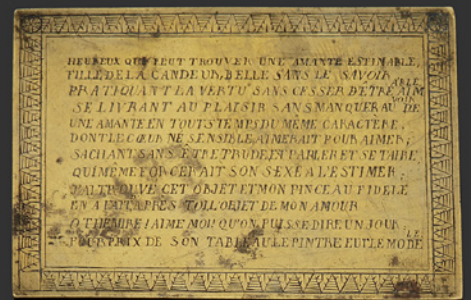 HEUREUX QUI PEUT TROUVER UNE AMANTE ESTIMABLE,
FILLE DE LA CANDEUR, BELLE SANS LE SAVOIR
PRATIQUANT LA VERTU SANS CESSER D'ÊTRE AIMABLE
SE LIVRANT AU PLAISIR SANS MANQUER AU DEVOIR
UNE AMANTE EN TOUTS TEMPS DU MÊME CARACTERE,
DONT LE CŒUR NÉ SENSIBLE AIMERAIT POUR AIMER;
SACHANT SANS ÊTRE PRUDE ET PARLER ET SE TAIRE
QUI MÊME FORCERAIT SON SEXE A L'ESTIMER;
J'AI TROUVÉ CET OBJET ET MON PINCEAU FIDELE
EN A FAIT APRÈS TOI L'OBJET DE MON AMOUR
Ô THEMIRE! AIME MOI! QU'ON PUISSE DIRE UN JOUR:
POUR PRIX DE SON TABLEAU LE PEINTRE EUT LE MODELE